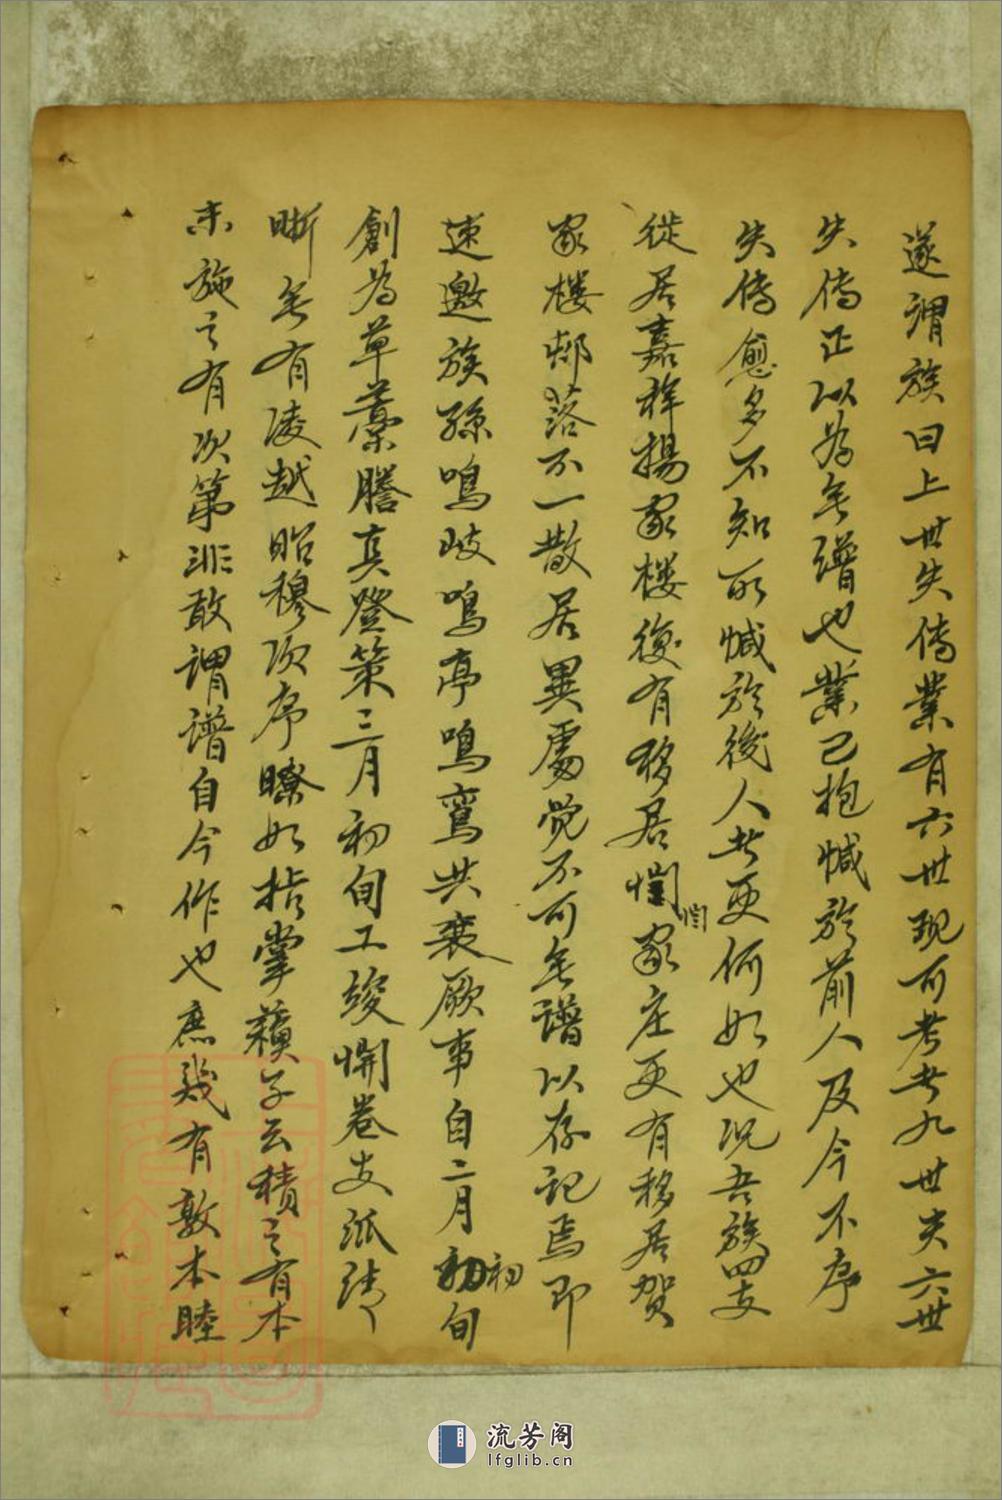 遂謂族曰上世失傳業有六世現可考者九世夫六世
失傳正以為無譜也業已抱憾於前人及今不序
失傳愈多不知所憾於後人者更何如也况吾族四支
徙居嘉祥揚家楼後有移居家庄更有移居贺
家楼邨落不一散居異處觉不可無譜以存記焉即
速邀族孫鳴岐鳴亭鳴鸞共襄厥事自二月初旬
初
創為草藁謄真登策三月初旬工竣開卷支派清
晰無有凌越昭穆次序瞭如指掌蘓子云積之有本
末施之有次第非敢謂譜自今作也庶幾有敦本睦
流芳阁
lfglib.cn